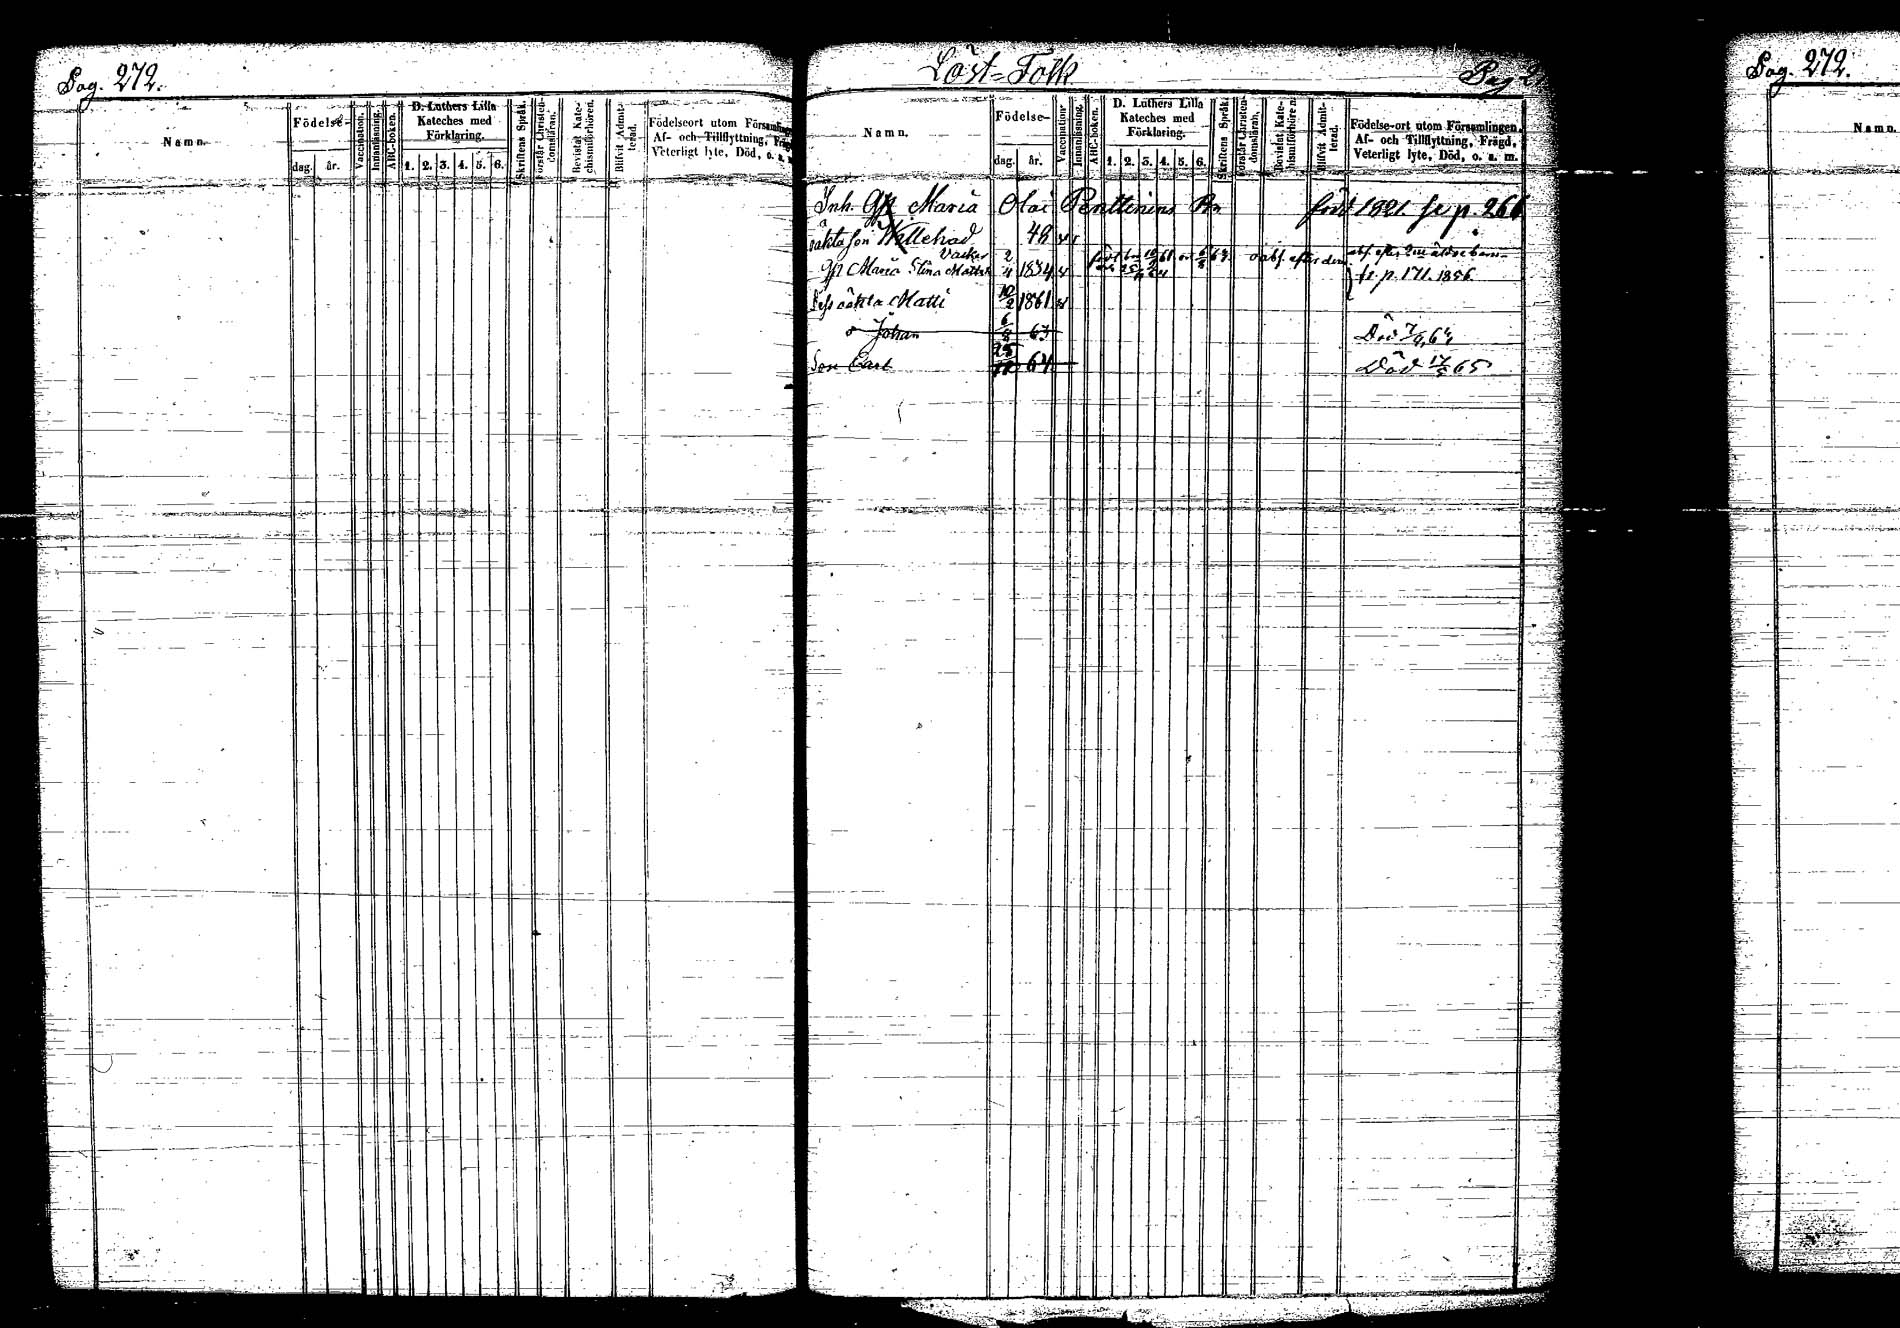 Pag. 272.
Namn.
Födelse-
dag. år.
Vaccination.
Innanläsning.
ABC-boken.
D. Luthers Lilla
Kateches med
Förklaring.
1. 2. 3. 4. 5. 6.
Skriftens Språk.
Förstår Christen-
domsläran.
Bevistat Kate-
chismiförhören.
Blifvit Admit-
terad.
Födelseort utom Församling
Af- och Tillflyttning, Frägd
Veterligt lyte, Död, o. a. m.
Löst-Folk
Pag
Namn.
Födelse-
dag. år.
Vaccination.
Innanläsning.
ABC-boken.
D. Luthers Lilla
Kateches med
Förklaring.
1. 2. 3. 4. 5. 6.
Skriftens Språk.
Förstår Christen-
domsläran.
Bevistat Kate-
chismiförhören.
Blifvit Admit-
terad.
Födelse-ort utom Församlingen,
Af- och Tillflyttning, Frägd,
Veterligt lyte, Död, o. a. m.
Inh. Maria Olai Penttinens född 1821. se p. 266
oäkta son Willehad 48
Maria Stina Matts 2/4 1834 abf. efter dem
se. p. 171. 1856.
oäkta Matti 10/2 1861
Johan 6/8 63 Död 7/9 64
Son Carl 25/11 64 Död 17/5 65
Pag. 272.
Namn.